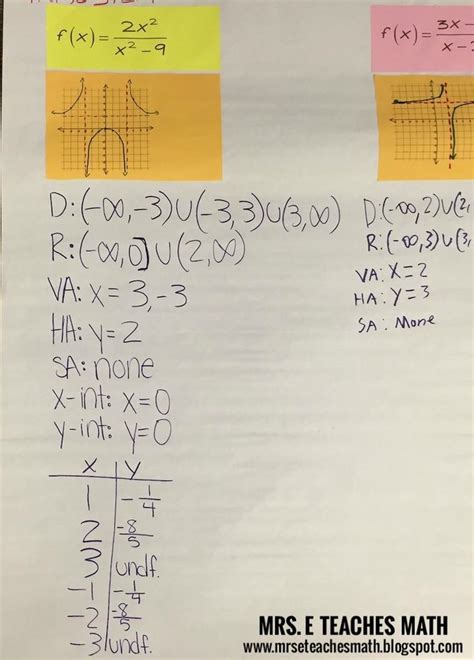 f(x) = 2x²/x² - 9
f(x) = 3x -
x -
D: (-∞, -3) ∪ (-3, 3) ∪ (3, ∞)
R: (-∞, 0] ∪ (2, ∞)
VA: x = 3, -3
HA: y = 2
SA: none
x-int: x = 0
y-int: y = 0
x y
1 -1/4
2 -8/5
3 undf.
-1 -1/4
-2 -8/5
-3 undf.
D: (-∞, 2) ∪ (2,
R: (-∞, 3) ∪ (3,
VA: X = 2
HA: y = 3
SA: None
MRS. E TEACHES MATH
www.mrseteachesmath.blogspot.com